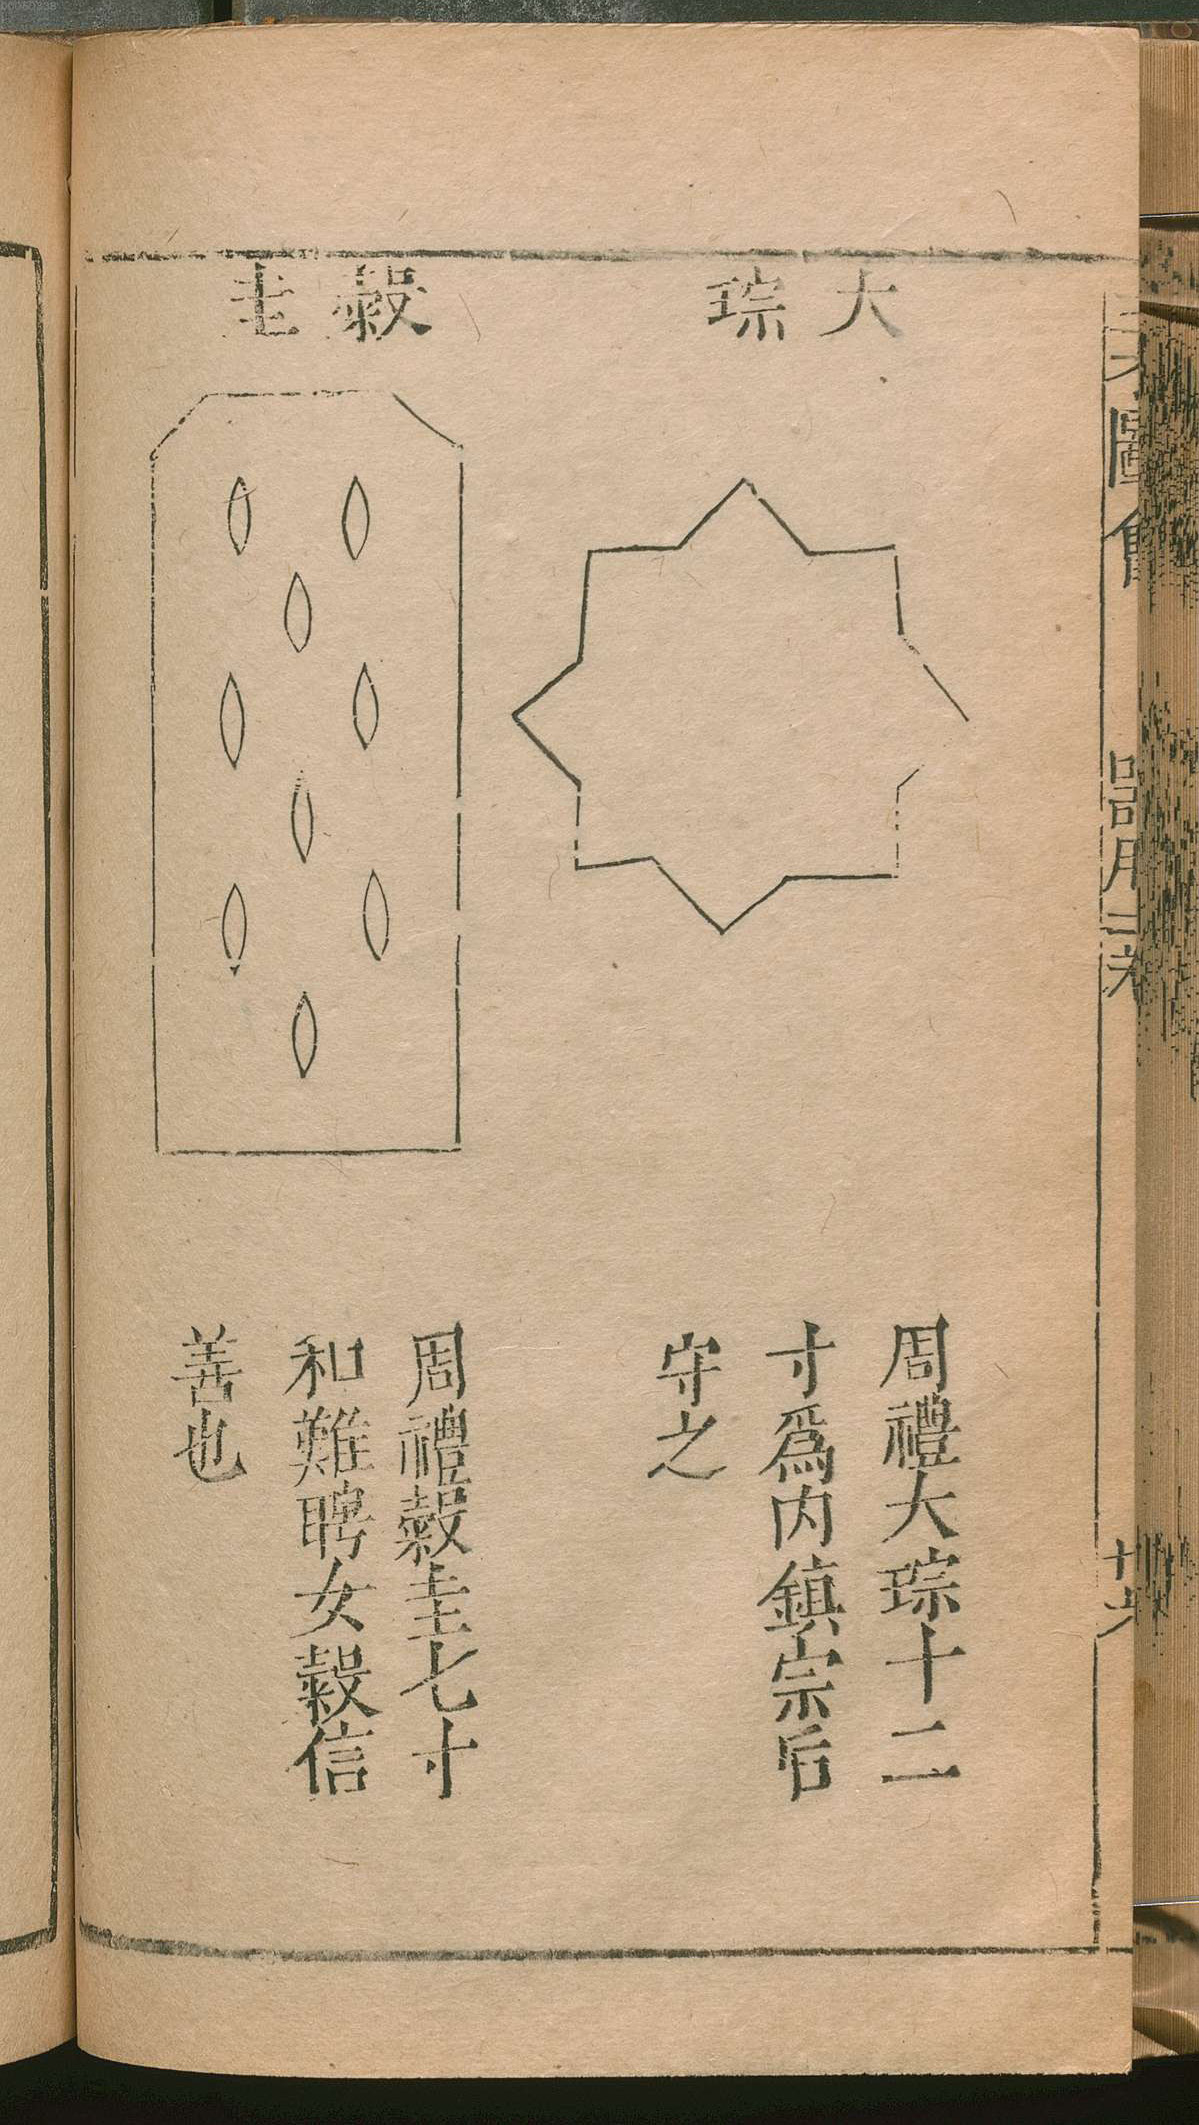 大琮
周禮大琮十二
寸爲内鎮宗后
守之
穀圭
周禮穀圭七寸
和難聘女穀信
善也
圖會
器用二卷